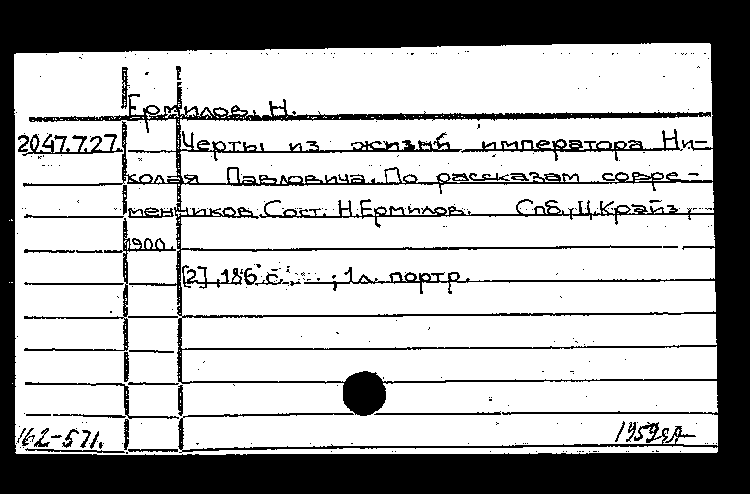 Ермилов, Н.
20.47.7.27. Черты из жизни императора Ни-
колая Павловича. По рассказам совре-
менников. Сост. Н.Ермилов. Спб, Ц.Крайз,
1900.
[2], 186 с. ; 1л. портр.
162-571.